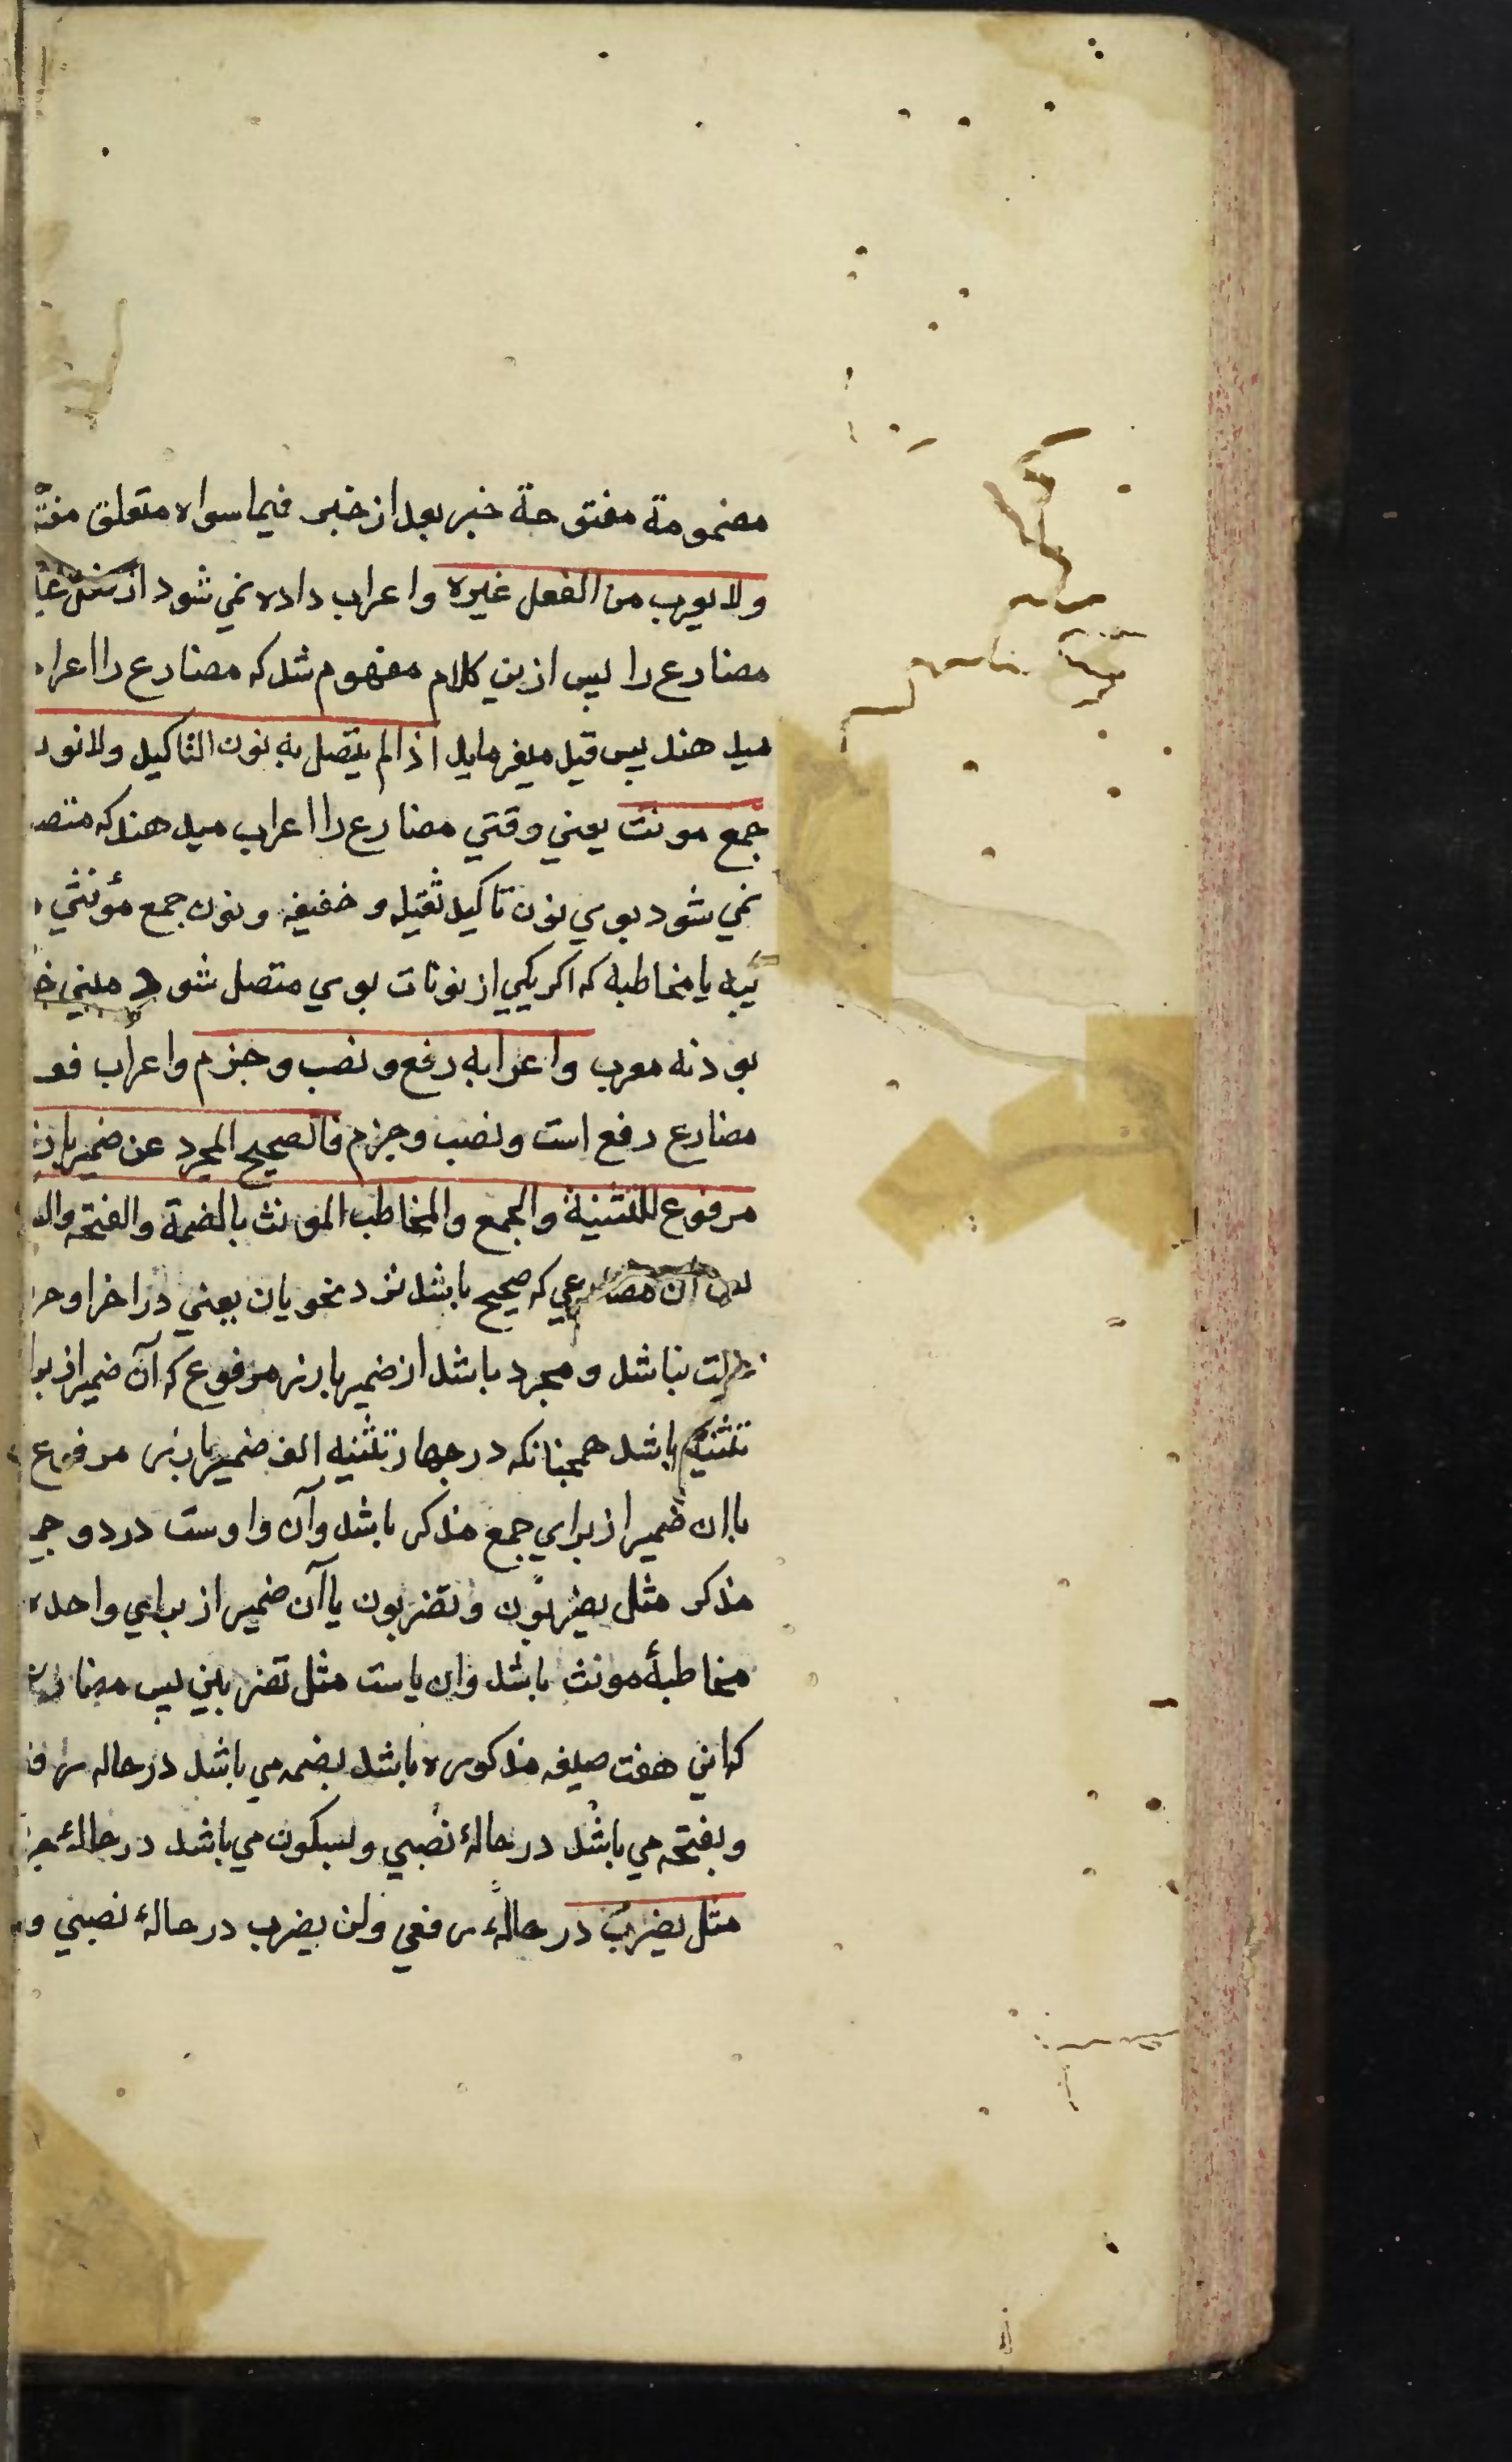 مضمومة مفتوحة خبر بعد از خبر فيما سواه متعلق مفتو
ولا يعرب من الفعل غيره واعراب داده نمي شود از فعل غير
مضارع را پس ازين كلام مفهوم شد كه مضارع را اعراب
ميد هند پس قيد ميفرمايد اذا لم يتصل به نون التاكيد ولا نون
جمع مونث يعني وقتي مضارع را اعراب ميد هند كه متصل
نمي شود بوي نون تاكيد ثقيله و خفيفه و نون جمع مؤنثي
يبه يا مخاطبه كه اكر يكي از نونات بوي متصل شود مبني خو
بود نه معرب واعرابه رفع و نصب و جزم واعراب فعل
مضارع رفع است و نصب و جزم فالصحيح المجرد عن ضمير بارز
مرفوع للتثنية والجمع والمخاطب المونث بالضمة والفتحه وال
پس آن مضارعي كه صحيح باشد نزد نحويان يعني در اخر او حر
علت نباشد و مجرد باشد از ضمير بارز مرفوع كه آن ضمير از برا
تثنيه باشد همچنانكه در چهار تثنيه الف ضمير بارز مرفوع
يا ان ضمير از براي جمع مذكر باشد و آن واوست در دو جمع
مذكر مثل يضربون و تضربون يا آن ضمير از براي واحده
مخاطبهٔ مونث باشد وان ياست مثل تضربين پس مضارع
كه اين هفت صيغه مذكوره باشد بضمه مي باشد در حاله رفع
و بفتحه مي باشد در حالهٔ نصبي و بسكون مي باشد در حالهٔ جز
مثل يضرب در حالهٔ رفعي ولن يضرب در حالهٔ نصبي و